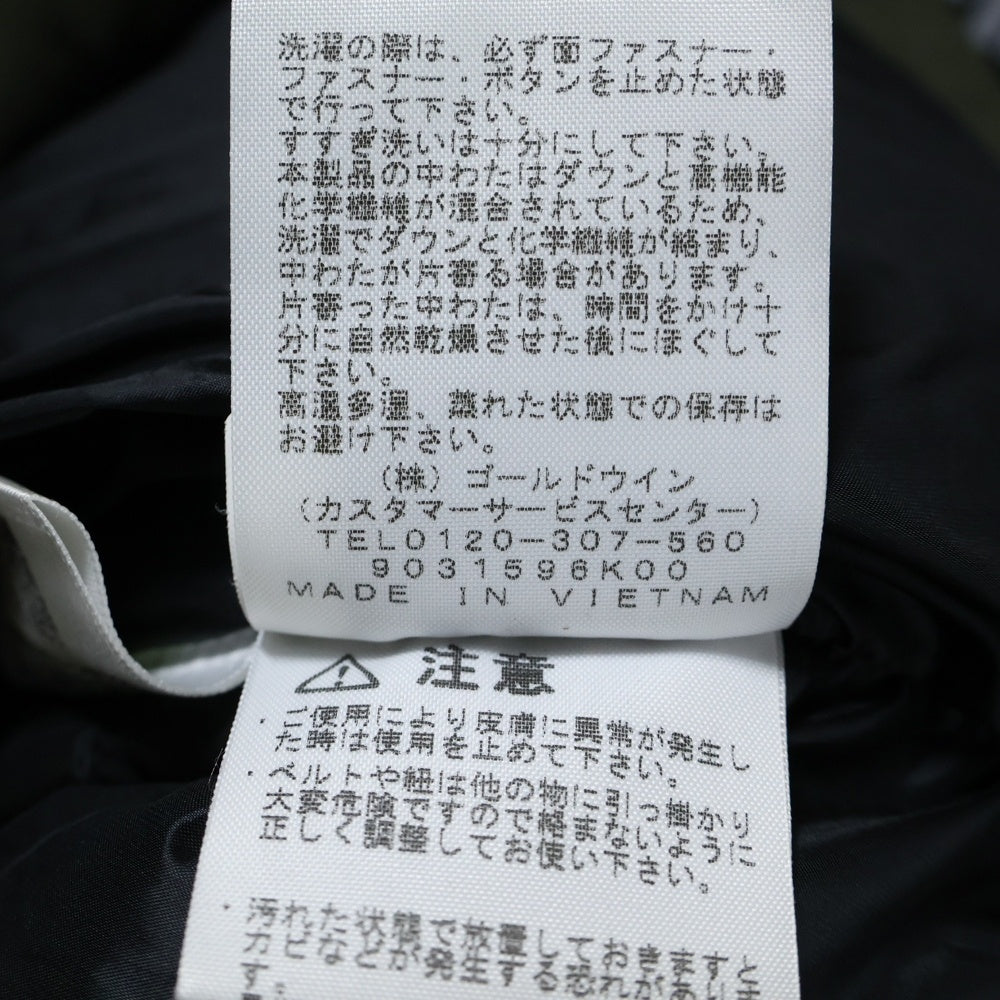 洗濯の際は、必ず面ファスナー・
ファスナー・ボタンを止めた状態
で行って下さい。
すすぎ洗いは十分にして下さい。
本製品の中わたはダウンと高機能
化学繊維が混合されているため、
洗濯でダウンと化学繊維が絡まり、
中わたが片寄る場合があります。
片寄った中わたは、時間をかけ十
分に自然乾燥させた後にほぐして
下さい。
高温多湿、蒸れた状態での保存は
お避け下さい。
(株) ゴールドウイン
(カスタマーサービスセンター)
TEL0120-307-560
9031596K00
MADE IN VIETNAM
注意
・ご使用により皮膚に異常が発生し
た時は使用を止めて下さい。
・ベルトや紐は他の物に引っ掛かり
大変危険ですので絡まないように
正しく調整してお使い下さい。
・汚れた状態で放置しておきますと
カビなどが発生する恐れがありま
す。